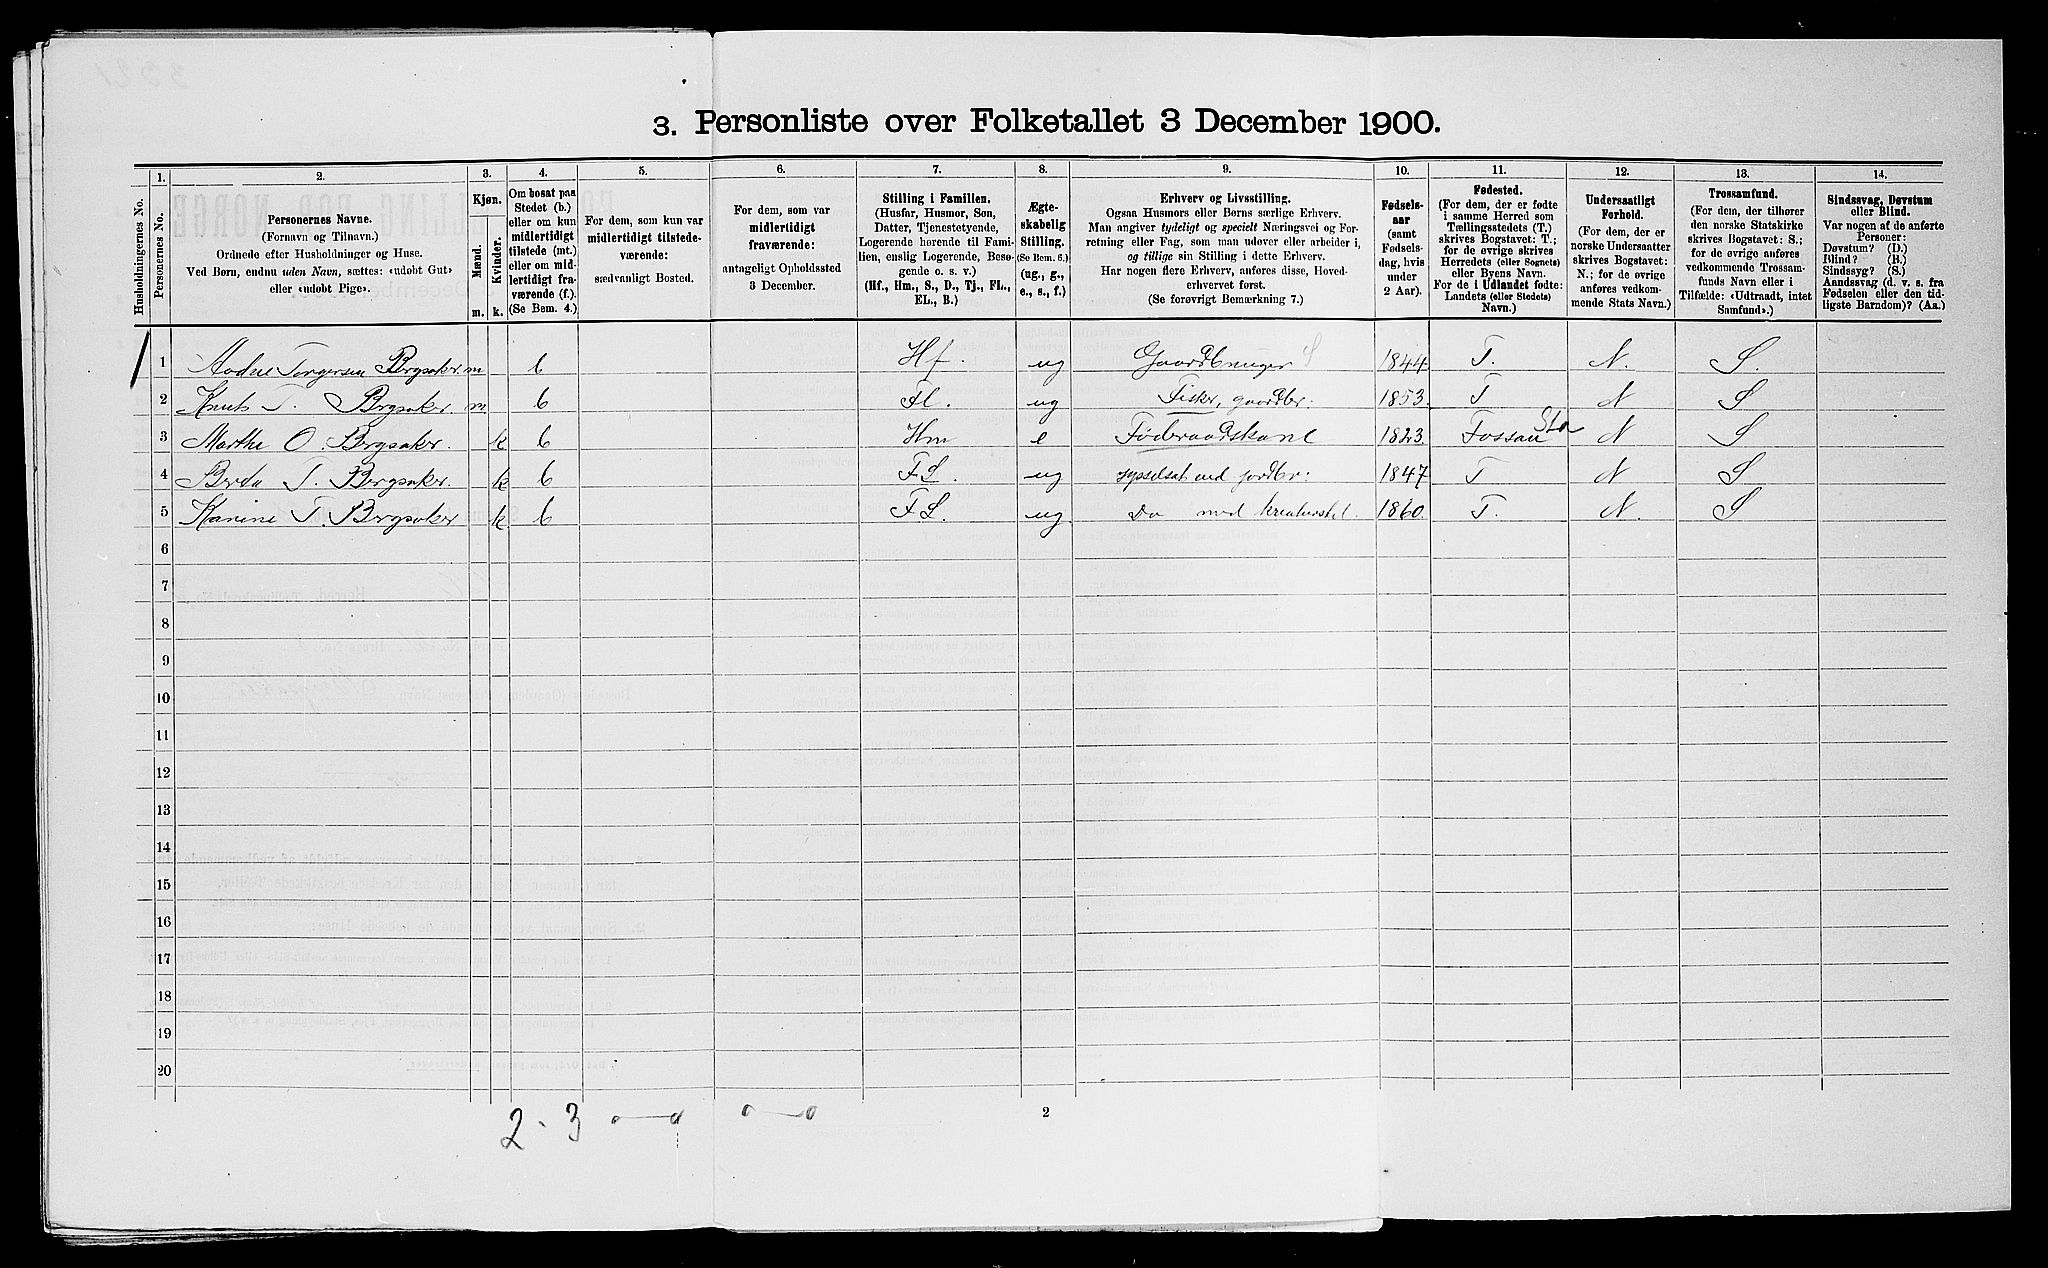 3. Personliste over Folketallet 3 December 1900.
Husholdningernes No.
1.
Personernes No.
2.
Personernes Navne.
(Fornavn og Tilnavn.)
Ordnede efter Husholdninger og Huse.
Ved Børn, endnu uden Navn, sættes: «udobt Gut»
eller «udobt Pige».
3.
Kjøn.
Mænd.
Kvinder.
m. k.
4.
Om bosat paa
Stedet (b.)
eller om kun
midlertidigt
tilstede (mt.)
eller om mid-
lertidigt fra-
værende (f.)
(Se Bem. 4.)
5.
For dem, som kun var
midlertidigt tilstede-
værende:
sædvanligt Bosted.
6.
For dem, som var
midlertidigt
fraværende:
antageligt Opholdssted
3 December.
7.
Stilling i Familien.
(Husfar, Husmor, Søn,
Datter, Tjenestetyende,
Logerende hørende til Fami-
lien, enslig Logerende, Besø-
gende o. s. v.)
(Hf., Hm., S., D., Tj., FL.,
EL., B.)
8.
Ægte-
skabelig
Stilling.
(Se Bem. 6.)
(ug., g.,
e., s., f.)
9.
Erhverv og Livsstilling.
Ogsaa Husmors eller Børns særlige Erhverv.
Man angiver tydeligt og specielt Næringsvei og For-
retning eller Fag, som man udøver eller arbeider i,
og tillige sin Stilling i dette Erhverv.
Har nogen flere Erhverv, anføres disse, Hoved-
erhvervet først.
(Se forøvrigt Bemærkning 7.)
10.
Fødsels-
aar
(samt
Fødsels-
dag, hvis
under
2 Aar).
11.
Fødested.
(For dem, der er fødte
i samme Herred som
Tællingsstedets (T.)
skrives Bogstavet: T.;
for de øvrige skrives
Herredets (eller Sognets)
eller Byens Navn.
For de i Udlandet fødte:
Landets (eller Stedets)
Navn.)
12.
Undersaatligt
Forhold.
(For dem, der er
norske Undersaatter
skrives Bogstavet:
N.; for de øvrige
anføres vedkom-
mende Stats Navn.)
13.
Trossamfund.
(For dem, der tilhører
den norske Statskirke
skrives Bogstavet: S.;
for de øvrige anføres
vedkommende Trossam-
funds Navn eller i
Tilfælde: «Udtraadt, intet
Samfund».)
14.
Sindssvag, Døvstum
eller Blind.
Var nogen af de anførte
Personer:
Døvstum? (D.)
Blind? (B.)
Sindssyg? (S.)
Aandssvag (d. v. s. fra
Fødselen eller den tid-
ligste Barndom)? (Aa.)
1 Aadne Torgersen Bergsaker. m b Hf. ug Gaardbruger S 1844. T. N. S.
2 Knut T. Bergsaker. m b Fl. ug Fisker, gaardbr: 1853. T N S
3 Marthe O. Bergsaker. k b Hm e Føderaadskone 1823. Fossan Sta N S
4 Berta T. Bergsaker. k b FL. ug sysselsat med jordbr: 1847 T N S
5 Karine T. Bergsaker k b FL. ug. Do med kreaturstel. 1860. T. N. S
6
7
8
9
10
11
12
13
14
15
16
17
18
19
20
2
2 - 3 0—0 0—0